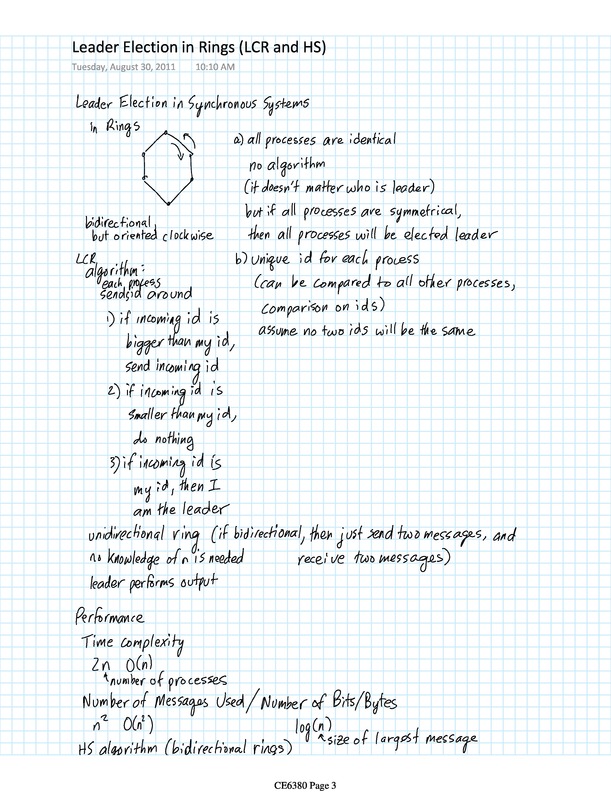 Leader Election in Rings (LCR and HS)
Tuesday, August 30, 2011 10:10 AM
Leader Election in Synchronous Systems
In Rings
bidirectional,
but oriented clockwise
a) all processes are identical
no algorithm
(it doesn't matter who is leader)
but if all processes are symmetrical,
then all processes will be elected leader
b) unique id for each process
(can be compared to all other processes,
comparison on ids)
assume no two ids will be the same
LCR
algorithm:
each process
sends id around
1) if incoming id is
bigger than my id,
send incoming id
2) if incoming id is
smaller than my id,
do nothing
3) if incoming id is
my id, then I
am the leader
unidirectional ring (if bidirectional, then just send two messages, and
no knowledge of n is needed receive two messages)
leader performs output
Performance
Time complexity
2n O(n)
number of processes
Number of Messages Used / Number of Bits/Bytes
n² O(n²) log(n)
size of largest message
HS algorithm (bidirectional rings)
CE6380 Page 3